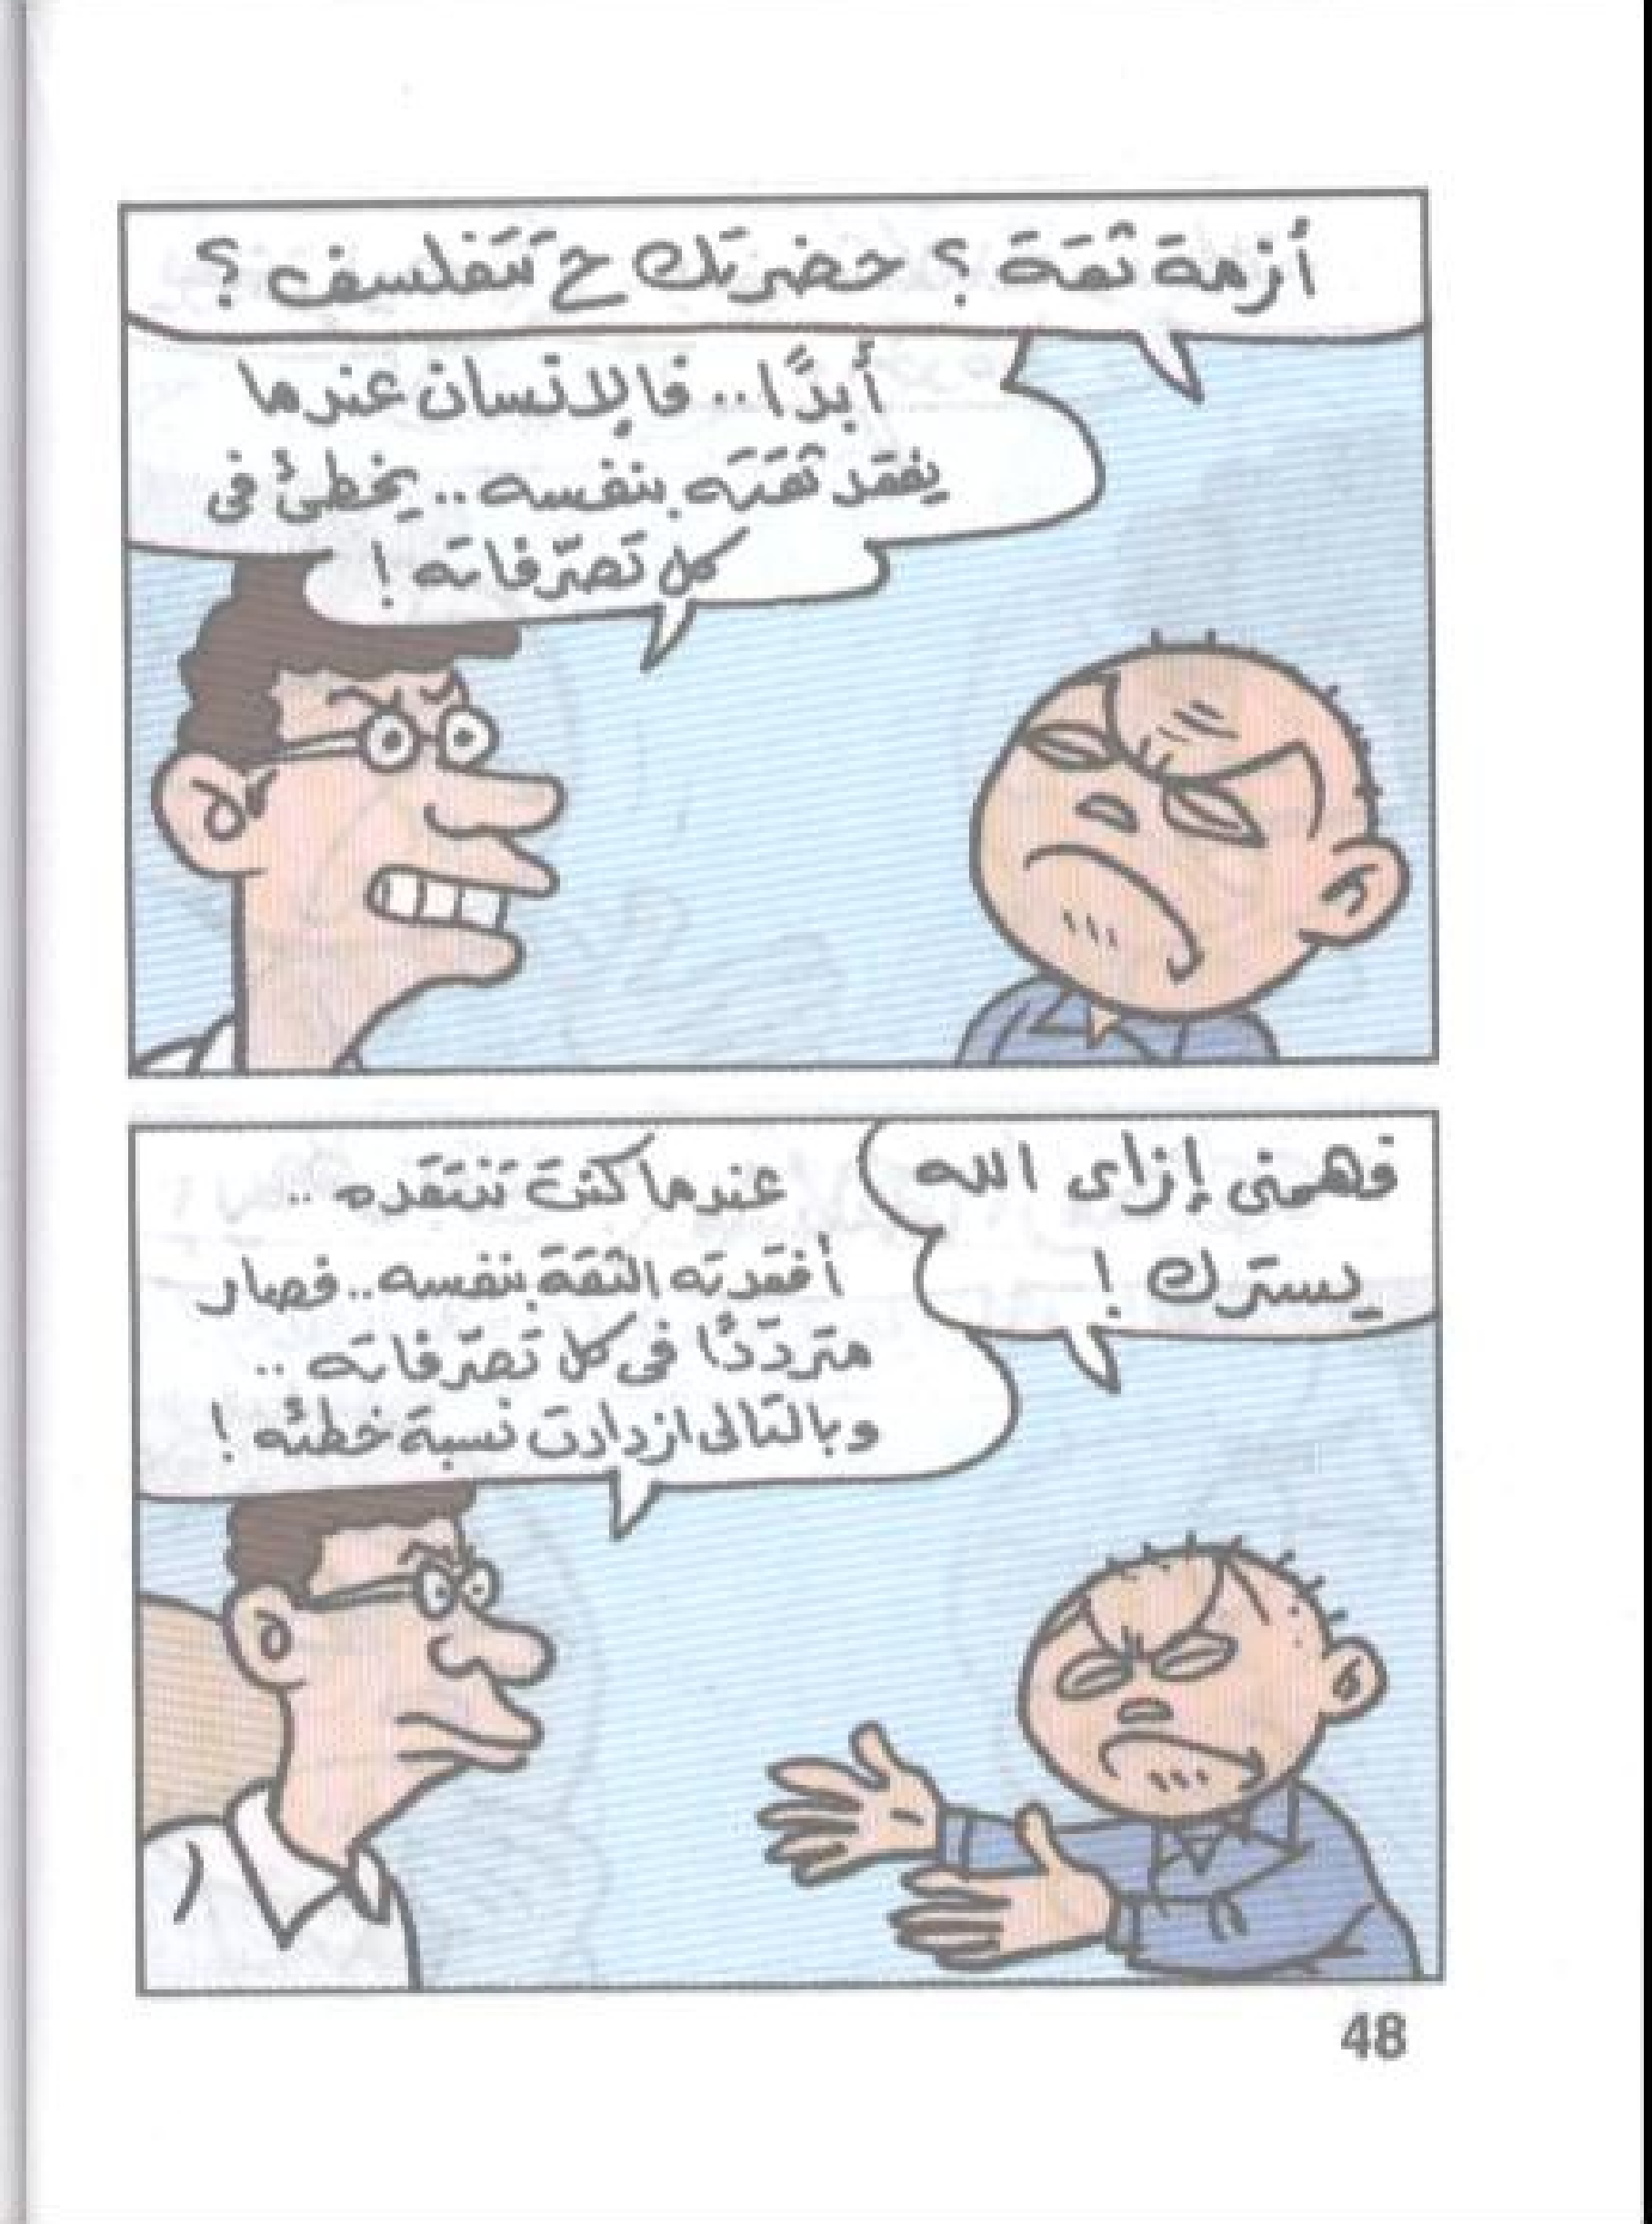 أزمة ثقة؟ حضرتك ح تتفلسف؟
أبدًا.. فالإنسان عندما
يفقد ثقته بنفسه.. يخطئ فى
كل تصرّفاته!
فهمنى إزاى الله
يسترك!
عندما كنت تنتقده..
أفقدته الثقة بنفسه.. فصار
متردّدًا فى كل تصرّفاته..
وبالتالى ازدادت نسبة خطئه!
48